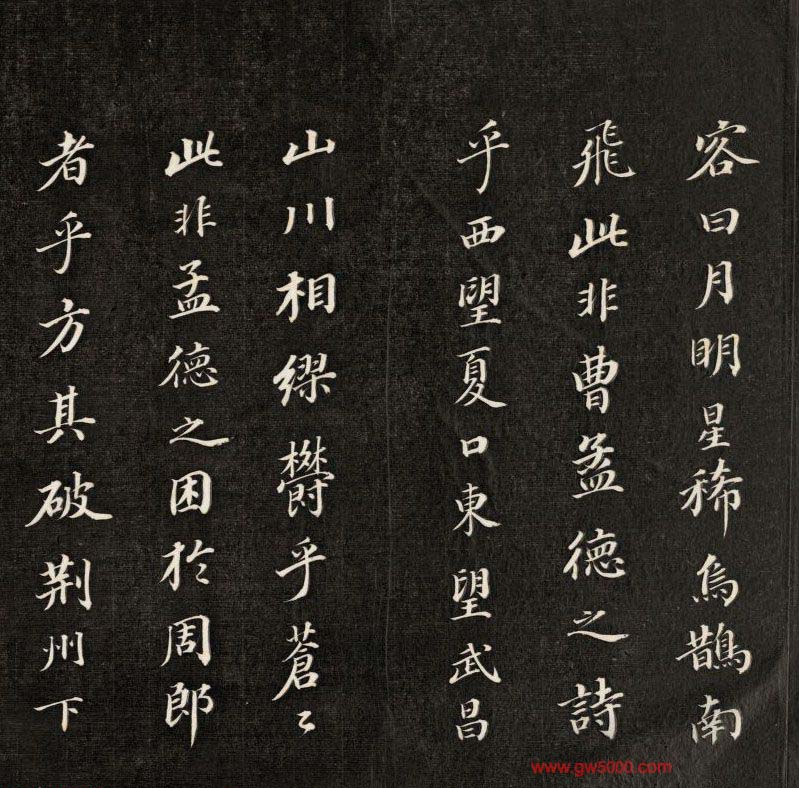 容曰月明星稀烏鵲南
飛此非曹孟德之詩
乎西望夏口東望武昌
山川相繆欝乎蒼〻
此非孟德之困於周郎
者乎方其破荆州下
www.gw5000.com